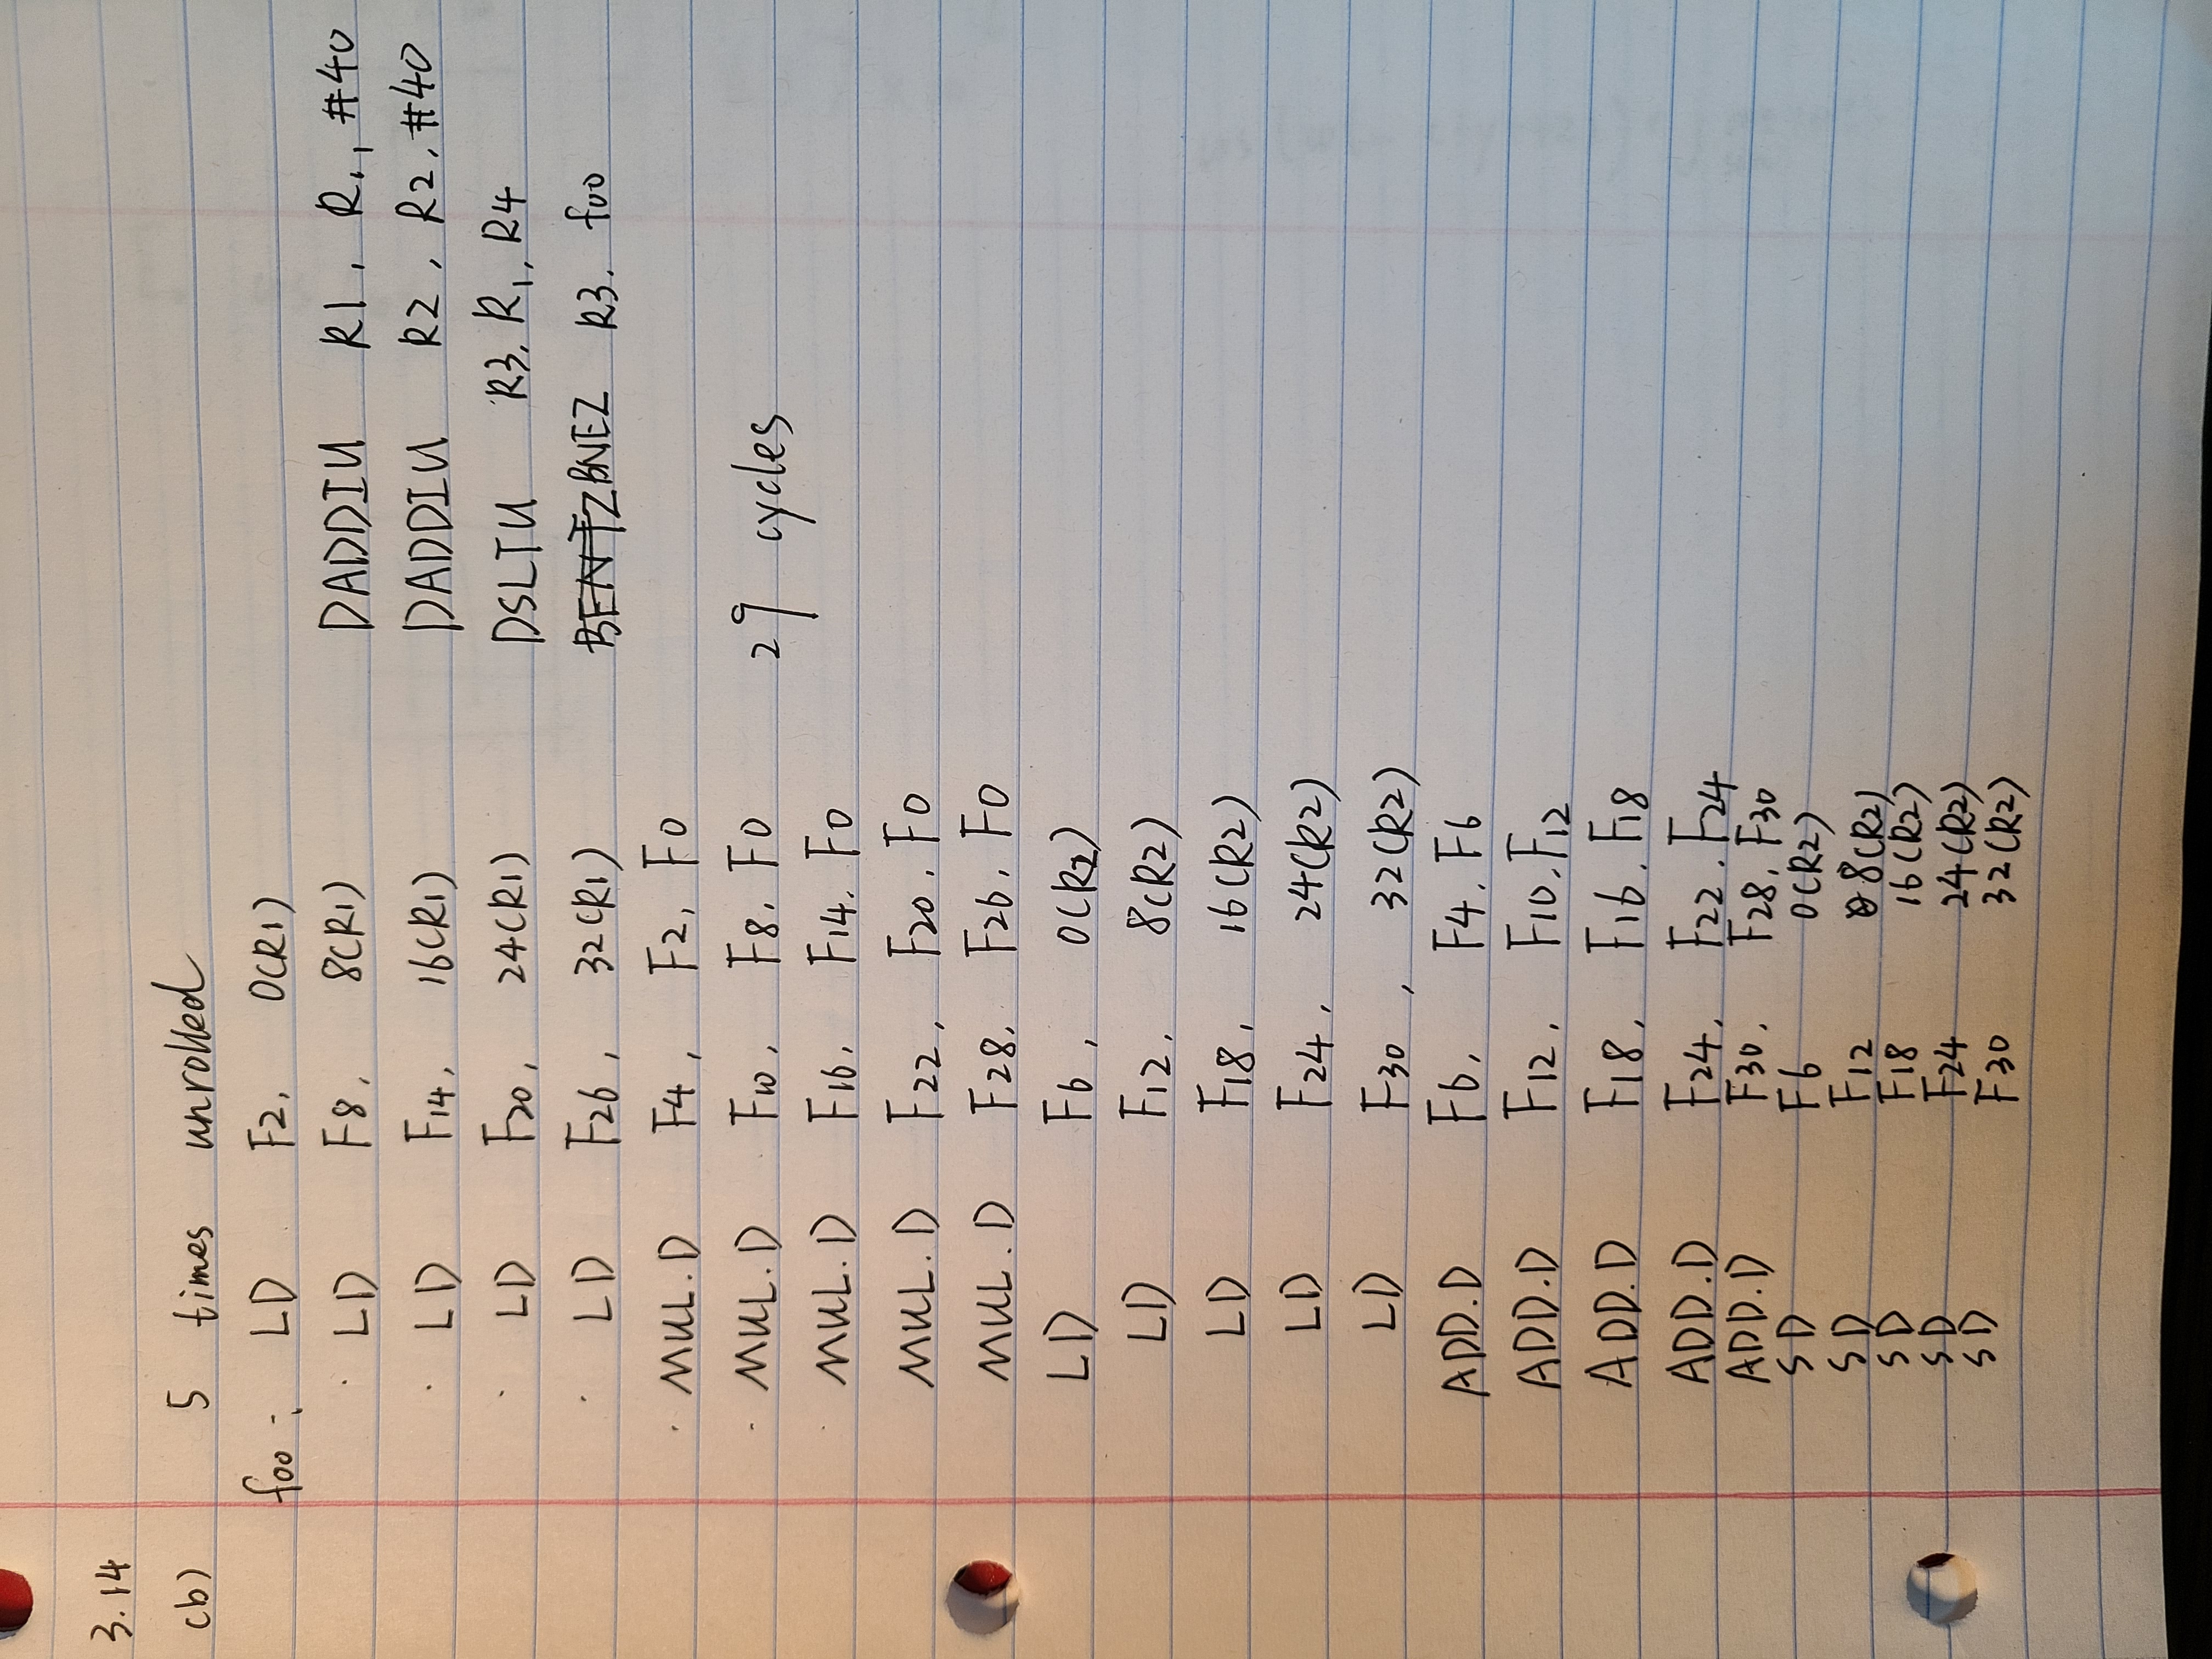 3.14
(b) 5 times unrolled
foo : LD F2, 0(R1)
LD F8, 8(R1)
LD F14, 16(R1)
LD F20, 24(R1)
LD F26, 32(R1)
MUL.D F4, F2, F0
MUL.D F10, F8, F0
MUL.D F16, F14, F0
MUL.D F22, F20, F0
MUL.D F28, F26, F0
LD F6, 0(R2)
LD F12, 8(R2)
LD F18, 16(R2)
LD F24, 24(R2)
LD F30, 32(R2)
ADD.D F6, F4, F6
ADD.D F12, F10, F12
ADD.D F18, F16, F18
ADD.D F24, F22, F24
ADD.D F30, F28, F30
SD F6 0(R2)
SD F12 8(R2)
SD F18 16(R2)
SD F24 24(R2)
SD F30 32(R2)
DADDIU R1, R1, #40
DADDIU R2, R2, #40
DSLTU R3, R1, R4
BNEZ R3, foo
29 cycles